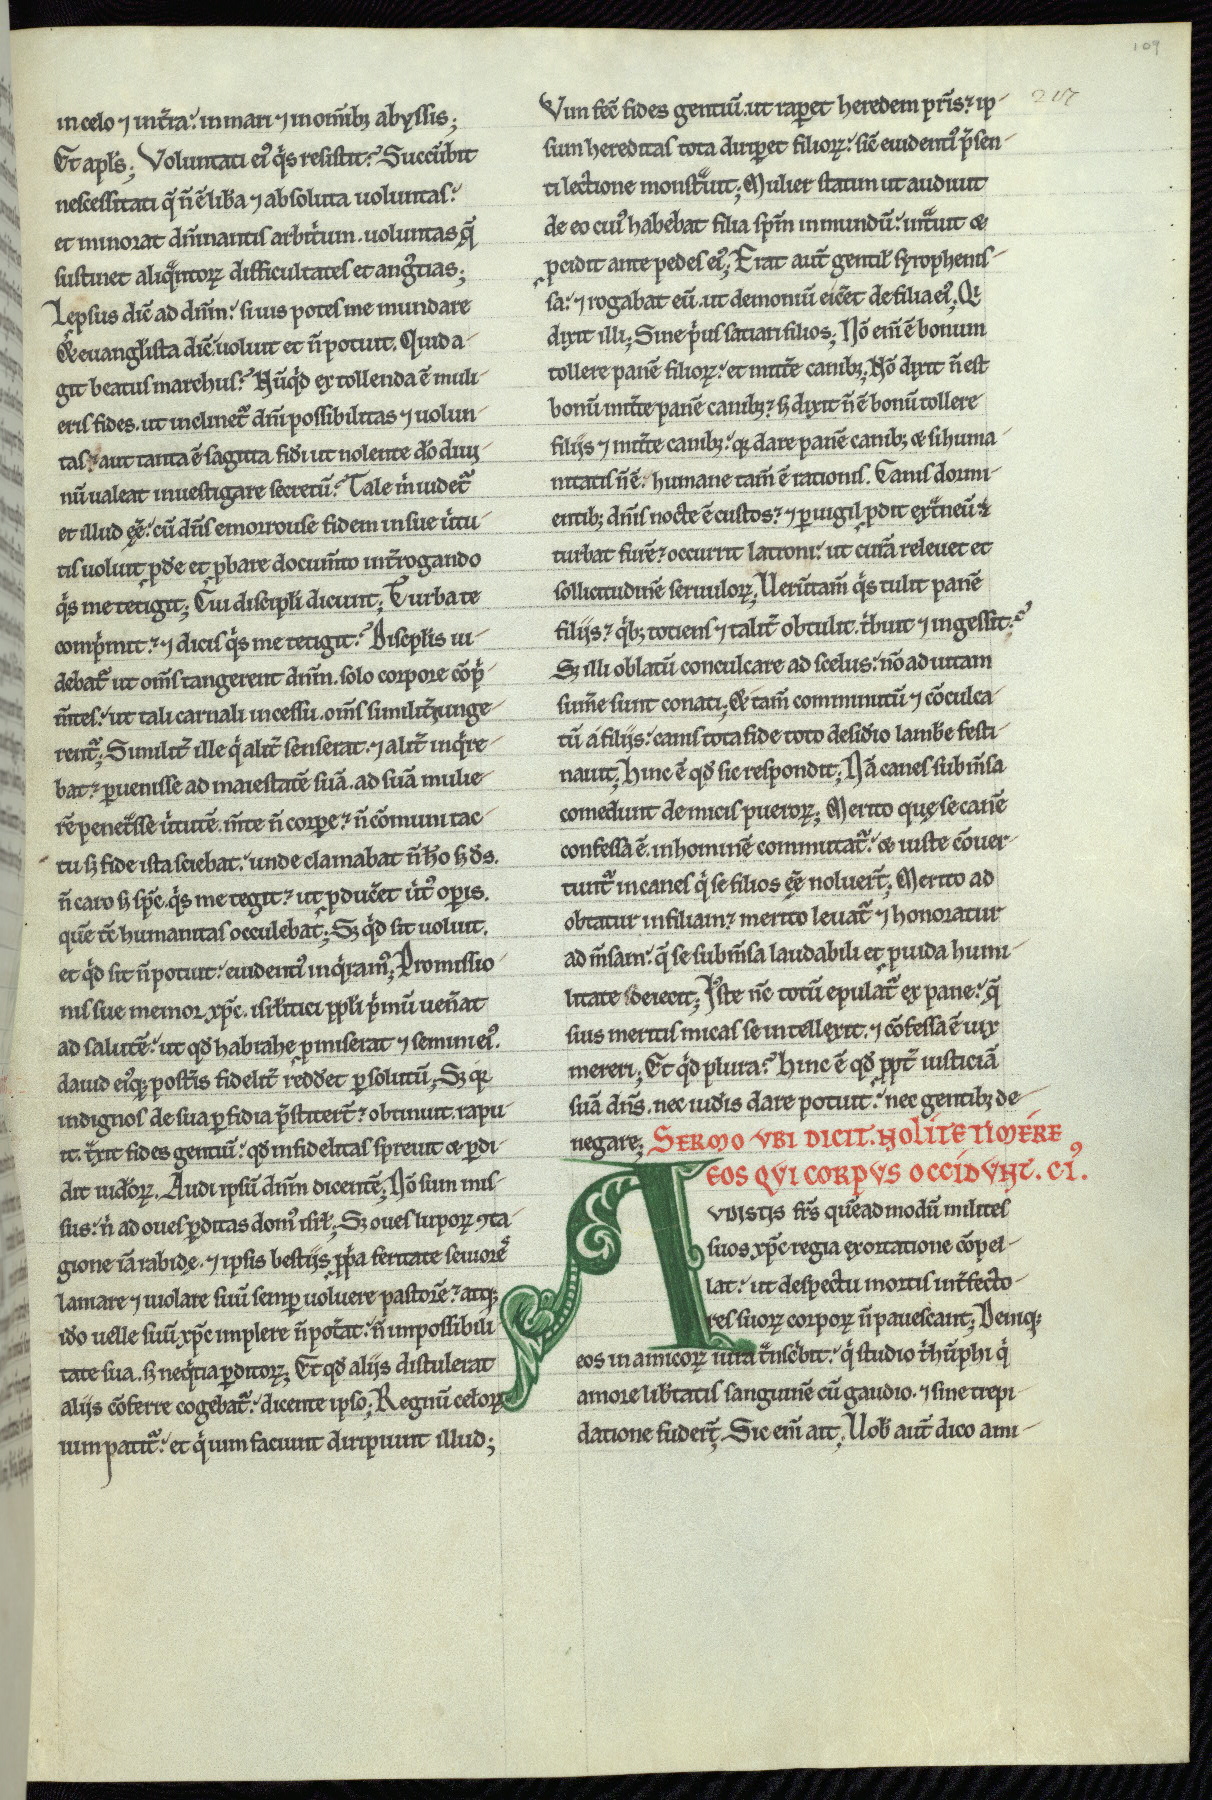 109
217
in celo ⁊ int̃ra. in mari ⁊ in om̃ib; abyssis;
Et apl's; Voluntati ei᷒ q̇s resistit? Succũbit
nescessitati q̃ ñ ẽ lib̃a ⁊ absoluta uoluntas.
et minorat dñinantis arbit̃ium. uoluntas q̃
sustinet aliq̃ntoꝝ difficultates et ang̃tias;
Lepsus dic̃ ad dñm. si uis potes me mundare
& euanglista dic̃. uoluit et ñ potuit. Quid a-
git beatus marchus? Nũq̇d extollenda ẽ muli-
eris fides. ut inclinet̃ dñi possibilitas ⁊ uolun-
tas? aut tanta ẽ sagitta fid̃i ut nolente dõ diui
nũ ualeat inuestigare secretũ? Tale m̃ uidet̃
et illud ẽẽ. cũ dñs emorrouse fidem in sue ũtu-
tis uoluit ꝓdẽ et ꝓbare docum̃to int̃rogando
q̇s me tetigit; Cui discipl̃i dicunt; Turba te
comp̃mit? ⁊ dicis q̇s me tetigit? Discipl̃is ui-
debat̃ ut om̃s tangerent dñm. solo corpore cõp̃
m̃tes. ut tali carnali incessu. om̃s similit̃ iunge-
rent̃; Similit̃ ille q̇ alit̃ senserat. ⁊ alit̃ inq̇re-
bat. ꝑuenisse ad maiestatẽ suã. ad suã mulie-
rẽ penet̃sse ũtutẽ. m̃te ñ corpe. ñ cõmuni tac-
tu s; fide ista sciebat. unde clamabat ñ hõ s; d̃s.
ñ caro s; sp̃c. q̇s me tegit? ut ꝓduc̃et ũt᷒ opis.
quẽ tc̃ humanitas occulebat; S; q̇d sit uoluit.
et q̇d sit ñ potuit. euidenti᷒ inq̇ram᷒; Promissio-
nis sue memor xp̃c. isrl̃itici ppl̃i p̃mũ uen̄at
ad salutẽ. ut qd̃ habrahe ꝓmiserat ⁊ semini ei᷒.
dauid ei᷒q; post̃is fidelit̃ redd̃et ꝑsolutũ; S; q̃
indignos de sua ꝑfidia p̃stiter̃t? obtinuit. rapu-
it. t̃xit fides gentiũ. qd̃ infidelitas spreuit & ꝑdi-
dit iud̃oꝝ. Audi ipsũ dñm dicentẽ; Nõ sum mis-
sus. ñ ad oues ꝑditas dom᷒ isrl̃; S; oues lupoꝝ ꝯta-
gione iã rabidę. ⁊ ipsis bestijs ppia feritate seuiorẽ
laniare ⁊ uiolare suũ semp uoluere pastorẽ? atq;
id̃o uelle suũ xp̃c implere ñ pot̃at. ñ impossibili
tate sua. s; neq̃tia ꝑditoꝝ; Et qd̃ alijs distulerat
alijs cõferre cogebat̃. dicente ipso; Regnũ celoꝝ
uim patit̃. et q̇ uim faciunt diripiunt illud;
Vim fec̃ fides gentiũ. ut rapet heredem pr̃is? ip-
sum hereditas tota diripet filioꝝ. sic̃ euidenti᷒ p̃sen-
ti lectione monst̃uit; Mulier statim ut audiuit
de eo cui᷒ habebat filia sp̃m inmundũ. int̃uit &
ꝓcidit ante pedes ei᷒; Erat aut̃ gentil̃ syrophenis-
sa. ⁊ rogabat eũ. ut demoniũ eic̃et de filia ei᷒; Qi
dixit illi; Sine p̃us satiari filios; Nõ em̃ ẽ bonum
tollere panẽ filioꝝ. et mitt̃e canib;; Nõ dixit ñ est
bonũ mitt̃e panẽ canib;? s; dixit ñ ẽ bonũ tollere
filijs ⁊ mitt̃e canib;. q; dare panẽ canib; & si huma-
nitatis ñ ẽ. humane tam̃ ẽ rationis. Canis dormi-
entib; dñis nocte ẽ custos. ⁊ ꝑuigil ꝓdit ext̃neũ &
turbat furẽ? occurrit latroni. ut curã releuet et
sollicitudinẽ seruuloꝝ; Ueruñtam̃ q̇s tulit panẽ
filijs? q̇b; totiens ⁊ talit̃ obtulit. t̃buit ⁊ ingessit?
S; illi oblatũ conculcare ad scelus. nõ ad uitam
sum̃e sunt conati; & tam̃ comminutũ ⁊ cõculca
tũ a filijs. canis tota fide toto desid̃io lamb̃e festi-
nauit; Hinc ẽ qd̃ sic respondit; Nã canes sub m̃sa
comedunt de micis pueroꝝ; Merito quę se canẽ
confessa ẽ. in hominẽ commutat̃. & iuste cõuer-
tunt̃ in canes q̇ se filios ẽẽ noluer̃t; Merito ad
obtatur in filiam? merito leuat̃ ⁊ honoratur
ad m̃sam. q̃ se sub m̃sa laudabili et ꝓuida humi-
litate deiecit; Iste ñc totũ epulat̃ ex pane. q̃
suis meritis micas se intellexit. ⁊ cõfessa ẽ uix
mereri; Et q̇d plura? Hinc ẽ qd̃ ppt̃ iusticiã
suã dñs. nec iud̃is dare potuit. nec gentib; de-
negare; SERMO VBI DICIT. NOLITE TIMERE
EOS QVI CORPVS OCCIDVNT. CI᷒.
AVDISTIS fr̃s quẽadmodũ milites
suos xp̃c regia exortatione cõpel-
lat. ut despectu mortis int̃fecto-
res suoꝝ corpoꝝ ñ pauescant; Deniq;
eos in amicoꝝ iura t̃nsc̃bit. q̇ studio t̃hũphi q̇
amore lib̃tatis sanguinẽ cũ gaudio. ⁊ sine trepi-
datione fuder̃t; Sic em̃ ait; Uob̃ aut̃ dico ami-